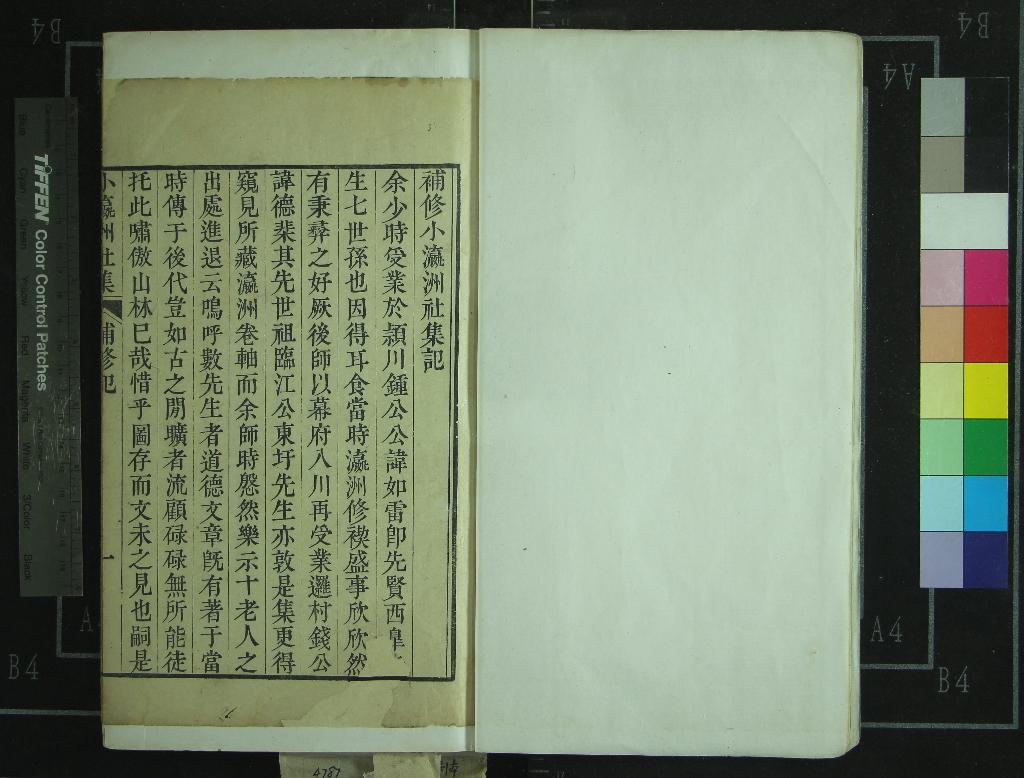 補修小瀛洲社集記
余少時受業於潁川鍾公公諱如雷卽先賢西臯
生七世孫也因得耳食當時瀛洲修禊盛事欣欣然
有秉彞之好厥後師以幕府入川再受業邏村錢公
諱德棐其先世祖臨江公東圩先生亦敦是集更得
窺見所藏瀛洲卷軸而余師時慇然樂示十老人之
出處進退云嗚呼數先生者道德文章旣有著于當
時傳于後代豈如古之閒曠者流顧碌碌無所能徒
托此嘯傲山林巳哉惜乎圖存而文未之見也嗣是
小瀛洲社集 補修記 一
TIFFEN Color Control Patches
Blue Cyan Green Yellow Red Magenta White 3/Color Black
B4
B4
A4
A4
B4
B4
4787